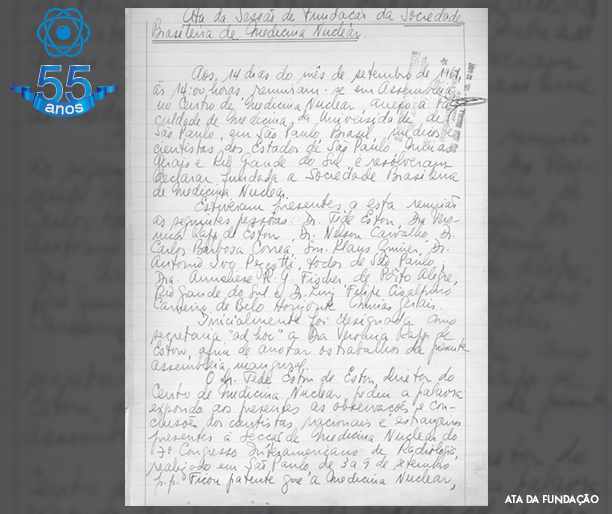 55
anos
Ata da Sessão de Fundação da Sociedade
Brasileira de Medicina Nuclear.
Aos, 14 dias do mês de setembro de 1961,
às 14:00 horas, reuniram-se em Assembleia
no Centro de Medicina Nuclear, anexo à Fa
culdade de Medicina, da Universidade de
São Paulo, em São Paulo, Brasil, médicos e
cientistas dos Estados de São Paulo, Minas
Gerais e Rio Grande do Sul, e resolveram
declarar fundada a Sociedade Brasileira
de Medicina Nuclear.
Estiveram presentes a esta reunião
as seguintes pessoas: Dr. Tede Eston, Dra Vero-
nica Rapp de Eston, Dr. Nelson Carvalho, Dr.
Carlos Barbosa Correa, Snr. Dr.
Antonio Ivo Pezzotti, todos de São Paulo,
Dra. Anneliese R. G. Fischer, de Porto Alegre,
Rio Grande do Sul e Dr. Luiz Felipe Cisalpino
Carneiro, de Belo Horizonte, Minas Gerais.
Inicialmente foi designada como
secretaria "ad hoc" a Dra Veronica Rapp de
Eston, afim de anotar os trabalhos da presente
assembléia inaugural.
O Dr. Tede Eston de Eston, diretor do
Centro de Medicina Nuclear, pediu a palavra
expondo aos presentes as observações e con-
clusões dos cientistas, nacionais e estrangeiros
presentes à Secção de Medicina Nuclear do
7º Congresso Interamericano de Radiologia,
realizado em São Paulo, de 3 a 9 de setembro
p.p. Ficou patente que a Medicina Nuclear,
ATA DA FUNDAÇÃO